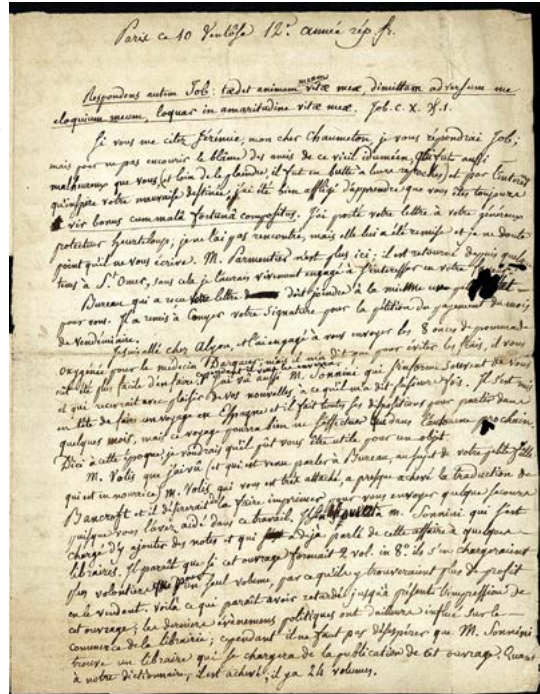 Paris ce 10 Ventôse 12e. année rép. fr.
Respondens autem Job: tædet animam meam vitæ meæ, dimittam adversum me
eloquium meum, loquar in amaritudine vitæ meæ. Job. c. X. ℣. 1.
Si vous me citez Jérémie, mon cher Chaumeton, je vous répondrai Job;
mais pour ne pas encourir le blâme des amis de ce vieil iduméen, qui fut aussi
malheureux que vous, et loin de le plaindre, il fut en butte à leurs reproches; et par l'intérêt
qu'inspire votre mauvaise destinée, j'ai été bien affligé d'apprendre que vous êtes toujours
vir bonus cum mala fortuna compositus. J'ai porté votre lettre à votre généreux
protecteur heurteloup; je ne l'ai pas rencontré, mais elle lui a été remise et je ne doute
point qu'il ne vous écrive. M. Parmentier n'est plus ici; il est retourné depuis quelque
tems à St. Omer, sans cela je l'aurais vivement engagé à s'intéresser en votre
Bureau qui a reçu votre lettre doit joindre à la mienne un
pour vous. Il a remis à Couyer votre signature pour la pétition du payement du mois
de Vendémiaire.
Je suis allé chez Alyon, et l'ai engagé à vous envoyer les 8 onces de pommade
oxygénée pour le médecin Dargues; mais il m'a dit que pour éviter les frais, il vous
eut été plus facile d'en faire; cependant il va les envoyer.
J'ai vu aussi M. Sonnini qui s'informe souvent de vous
et qui recevrait avec plaisir de vos nouvelles, à ce qu'il m'a dit plusieurs fois. Il s'est mis
en tête de faire un voyage en Espagne et il fait toutes ses dispositions pour partir dans
quelques mois, mais ce voyage pourra bien ne s'effectuer que dans l'automne prochain.
D'ici à cette époque, je voudrais qu'il pût vous être utile pour un objet.
M. Volis que j'ai vu et qui est venu parler à Bureau, au sujet de votre petite fille
qui est en nourrice; M. Volis, qui vous est très attaché, a presque achevé la traduction de
Bancroft et il désirerait la faire imprimer pour vous envoyer quelque secours
puisque vous l'avez aidé dans ce travail. à M. Sonnini qui s'est
chargé d'y ajouter des notes et qui a déjà parlé de cette affaire à quelques
libraires. Il paraît que si cet ouvrage formait 2 vol. in 8° ils s'en chargeraient
plus volontiers que pour un seul volume, parce qu'ils y trouveraient plus de profit
en le vendant. Voilà ce qui paraît avoir retardé jusqu'à présent l'impression de
cet ouvrage; les derniers évènemens politiques ont d'ailleurs influé sur le
commerce de la librairie; cependant il ne faut pas désespérer que M. Sonnini
trouve un libraire qui se chargera de la publication de cet ouvrage. Quant
à notre dictionnaire, il est achevé; il y a 24 volumes.